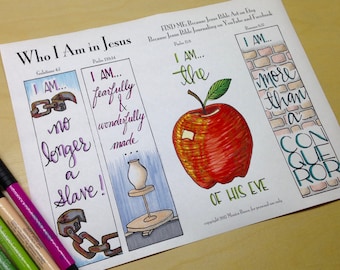 Who I Am in Jesus
FIND ME: Because Jesus Bible Art on Etsy
Because Jesus Bible Journaling on YouTube and Facebook
Galatians 4:7
I AM...
no
longer
a
slave!
Psalm 139:14
I AM...
fearfully
&
wonderfully
made
...
Psalm 17:8
I AM...
the
OF HIS EYE
Romans 8:37
I AM...
more
than
a
CON
QUE
ROR
copyright 2015
for personal use only